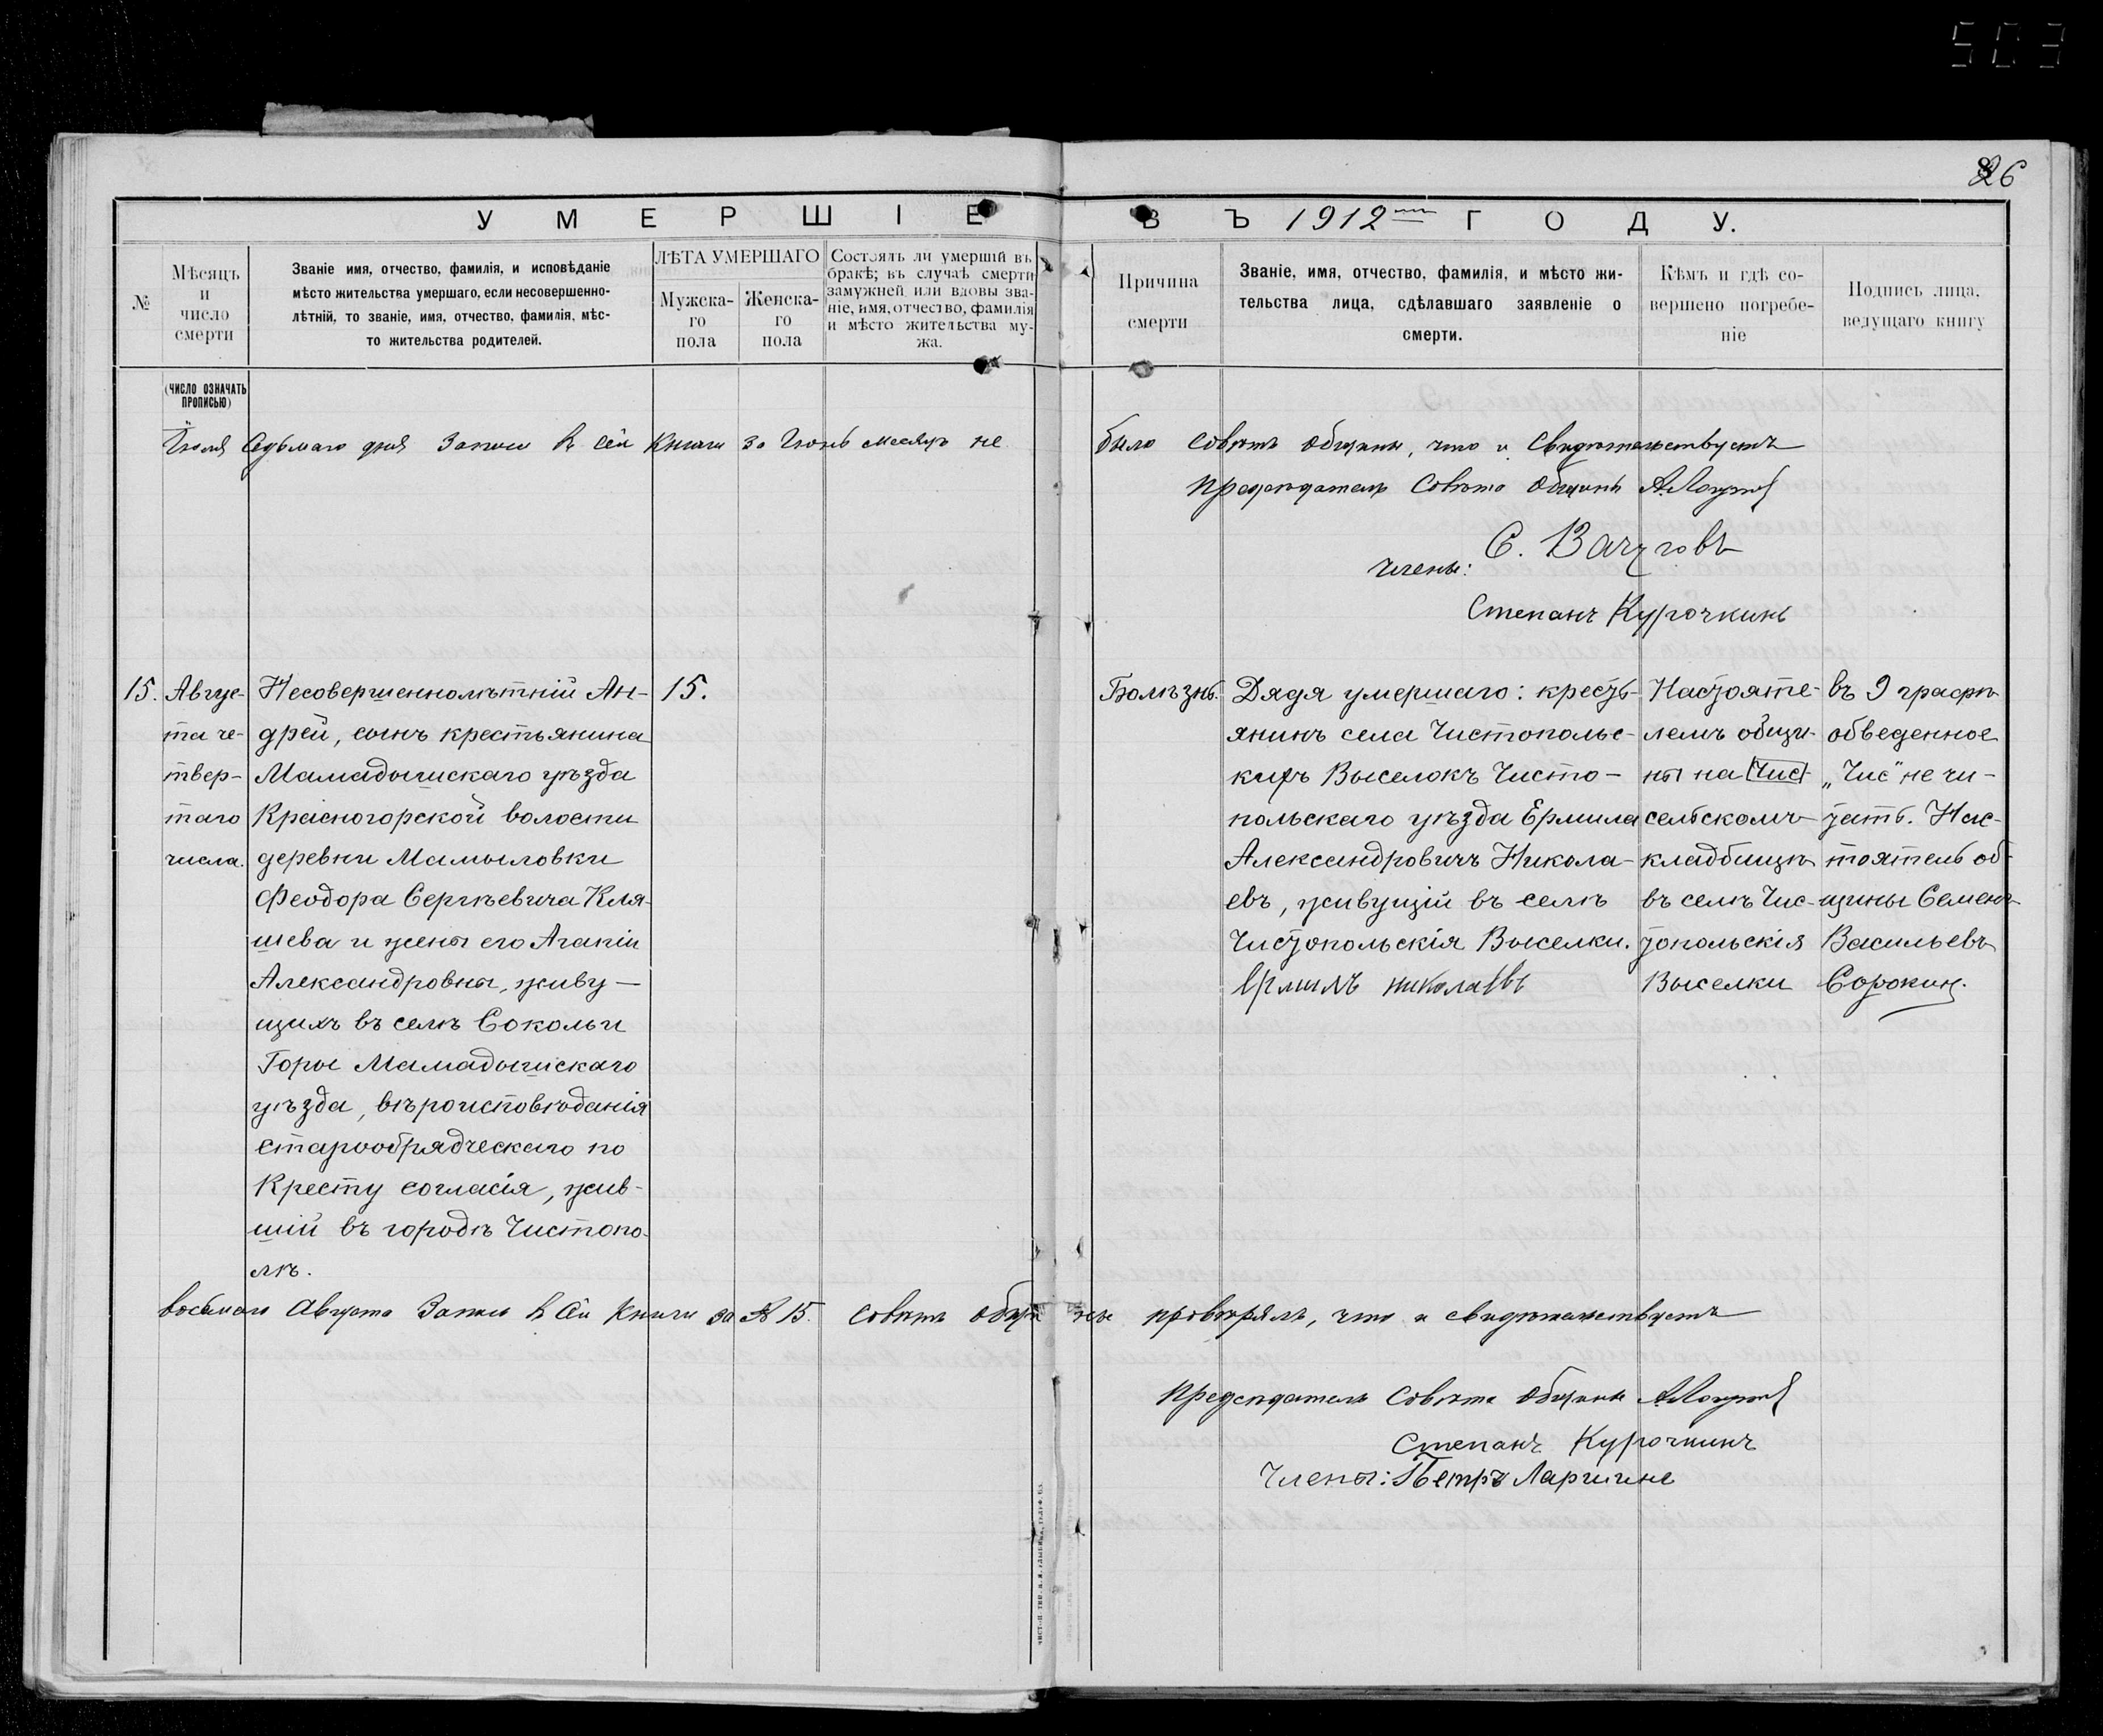 503
26
УМЕРШІЕ ВЪ 1912 ГОДУ.
№
Мѣсяцъ
и
число
смерти
Званіе имя, отчество, фамилія, и исповѣданіе
мѣсто жительства умершаго, если несовершенно-
лѣтній, то званіе, имя, отчество, фамилія, мѣс-
то жительства родителей.
ЛѢТА УМЕРШАГО
Мужска-
го
пола
Женска-
го
пола
Состоялъ ли умершій въ
бракѣ; въ случаѣ смерти
замужней или вдовы зва-
ніе, имя, отчество, фамилія
и мѣсто жительства му-
жа.
Причина
смерти
Званіе, имя, отчество, фамилія, и мѣсто жи-
тельства лица, сдѣлавшаго заявленіе о
смерти.
Кѣмъ и гдѣ со-
вершено погребе-
ніе
Подпись лица,
ведущаго книгу
(ЧИСЛО ОЗНАЧАТЬ
ПРОПИСЬЮ)
Іюля Седьмаго дня Записи в сей Книги за Іюнь месяцъ не было Совѣтъ Общины, что и Свидѣтельствуетъ
Предсѣдатель Совѣта Общины
С. Вачуговъ
Члены:
Степанъ Курочкинъ
15.
Авгус-
та че-
твер-
таго
числа.
Несовершеннолѣтній Ан-
дрей, сынъ крестьянина
Мамадышскаго уѣзда
Красногорской волости
деревни Мамыловки
Феодора Сергѣевича Кля-
шева и жены его Агапіи
Александровны, живу-
щихъ въ селѣ Сокольи
Горы Мамадышскаго
уѣзда, вѣроисповѣданія
старообрядческаго по
Кресту согласія, жив-
шій въ городѣ Чистопо-
лѣ.
15.
Болѣзнь.
Дядя умершаго: кресть-
янинъ села Чистопольс-
кихъ Выселокъ Чисто-
польскаго уѣзда Ермила
Александровичъ Никола-
евъ, живущій въ селѣ
Чистопольскія Выселки.
Ермилъ николаевъ
Настояте-
лемъ общи-
ны на Чис
сельскомъ
кладбищѣ
въ селѣ Чис-
топольскія
Выселки
въ 9 графѣ
обведенное
„Чис" не чи-
тать. Нас-
тоятель об-
щины Семенъ
Васильевъ
Сорокин.
восьмаго Августа Записи в Сей Книги за № 15. Совѣтъ общины провѣрялъ, что и свидѣтельствуетъ
Предсѣдатель Совѣта Общины
Степанъ Курочкинъ
Члены: Петръ